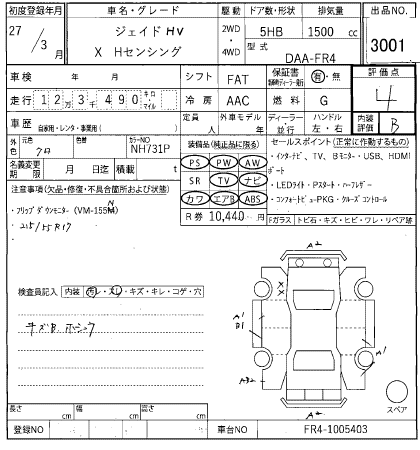 初度登録年月 車名・グレード 駆動 ドア数・形状 排気量 出品NO.
27 / 3月 ジェイド HV 2WD・4WD 5HB 1500 cc 3001
X Hセンシング 型式 DAA-FR4
車検 年 月 シフト FAT 保証書 有・無 評価点
走行 12万3千490 キロ マイル 冷房 AAC 燃料 G 4
車歴 自家用・レンタ・事業用( ) 定員 人 外車モデル 年 ディーラー 並行 ハンドル 左・右 内装評価 B
外色 元色 クロ 色替 カラーNO NH731P 装備品(純正品に限る) セールスポイント(正常に作動するもの)
名義変更期限 月 日迄 積載 t PS PW AW ・インターナビ、TV、Bモニター・USB、HDMI
ポート
注意事項(欠品・修復・不具合箇所および状態) SR TV ナビ ・LEDライト・Pスタート・ハーフレザー
・フリップダウンモニター(VM-155M) カワ エアB ABS ・コンフォートビューPKG・クルーズコントロール
・215/55R17 R券 10,440円 Fガラス トビ石・キズ・ヒビ・ワレ・リペア跡
A2
検査員記入 内装 汚レ・スレ・キズ・キレ・コゲ・穴
A1
B1
A1
キズB ホシュウ
AB2
A2
スペア
長さ cm 幅 cm 高さ cm
登録NO 車台NO FR4-1005403